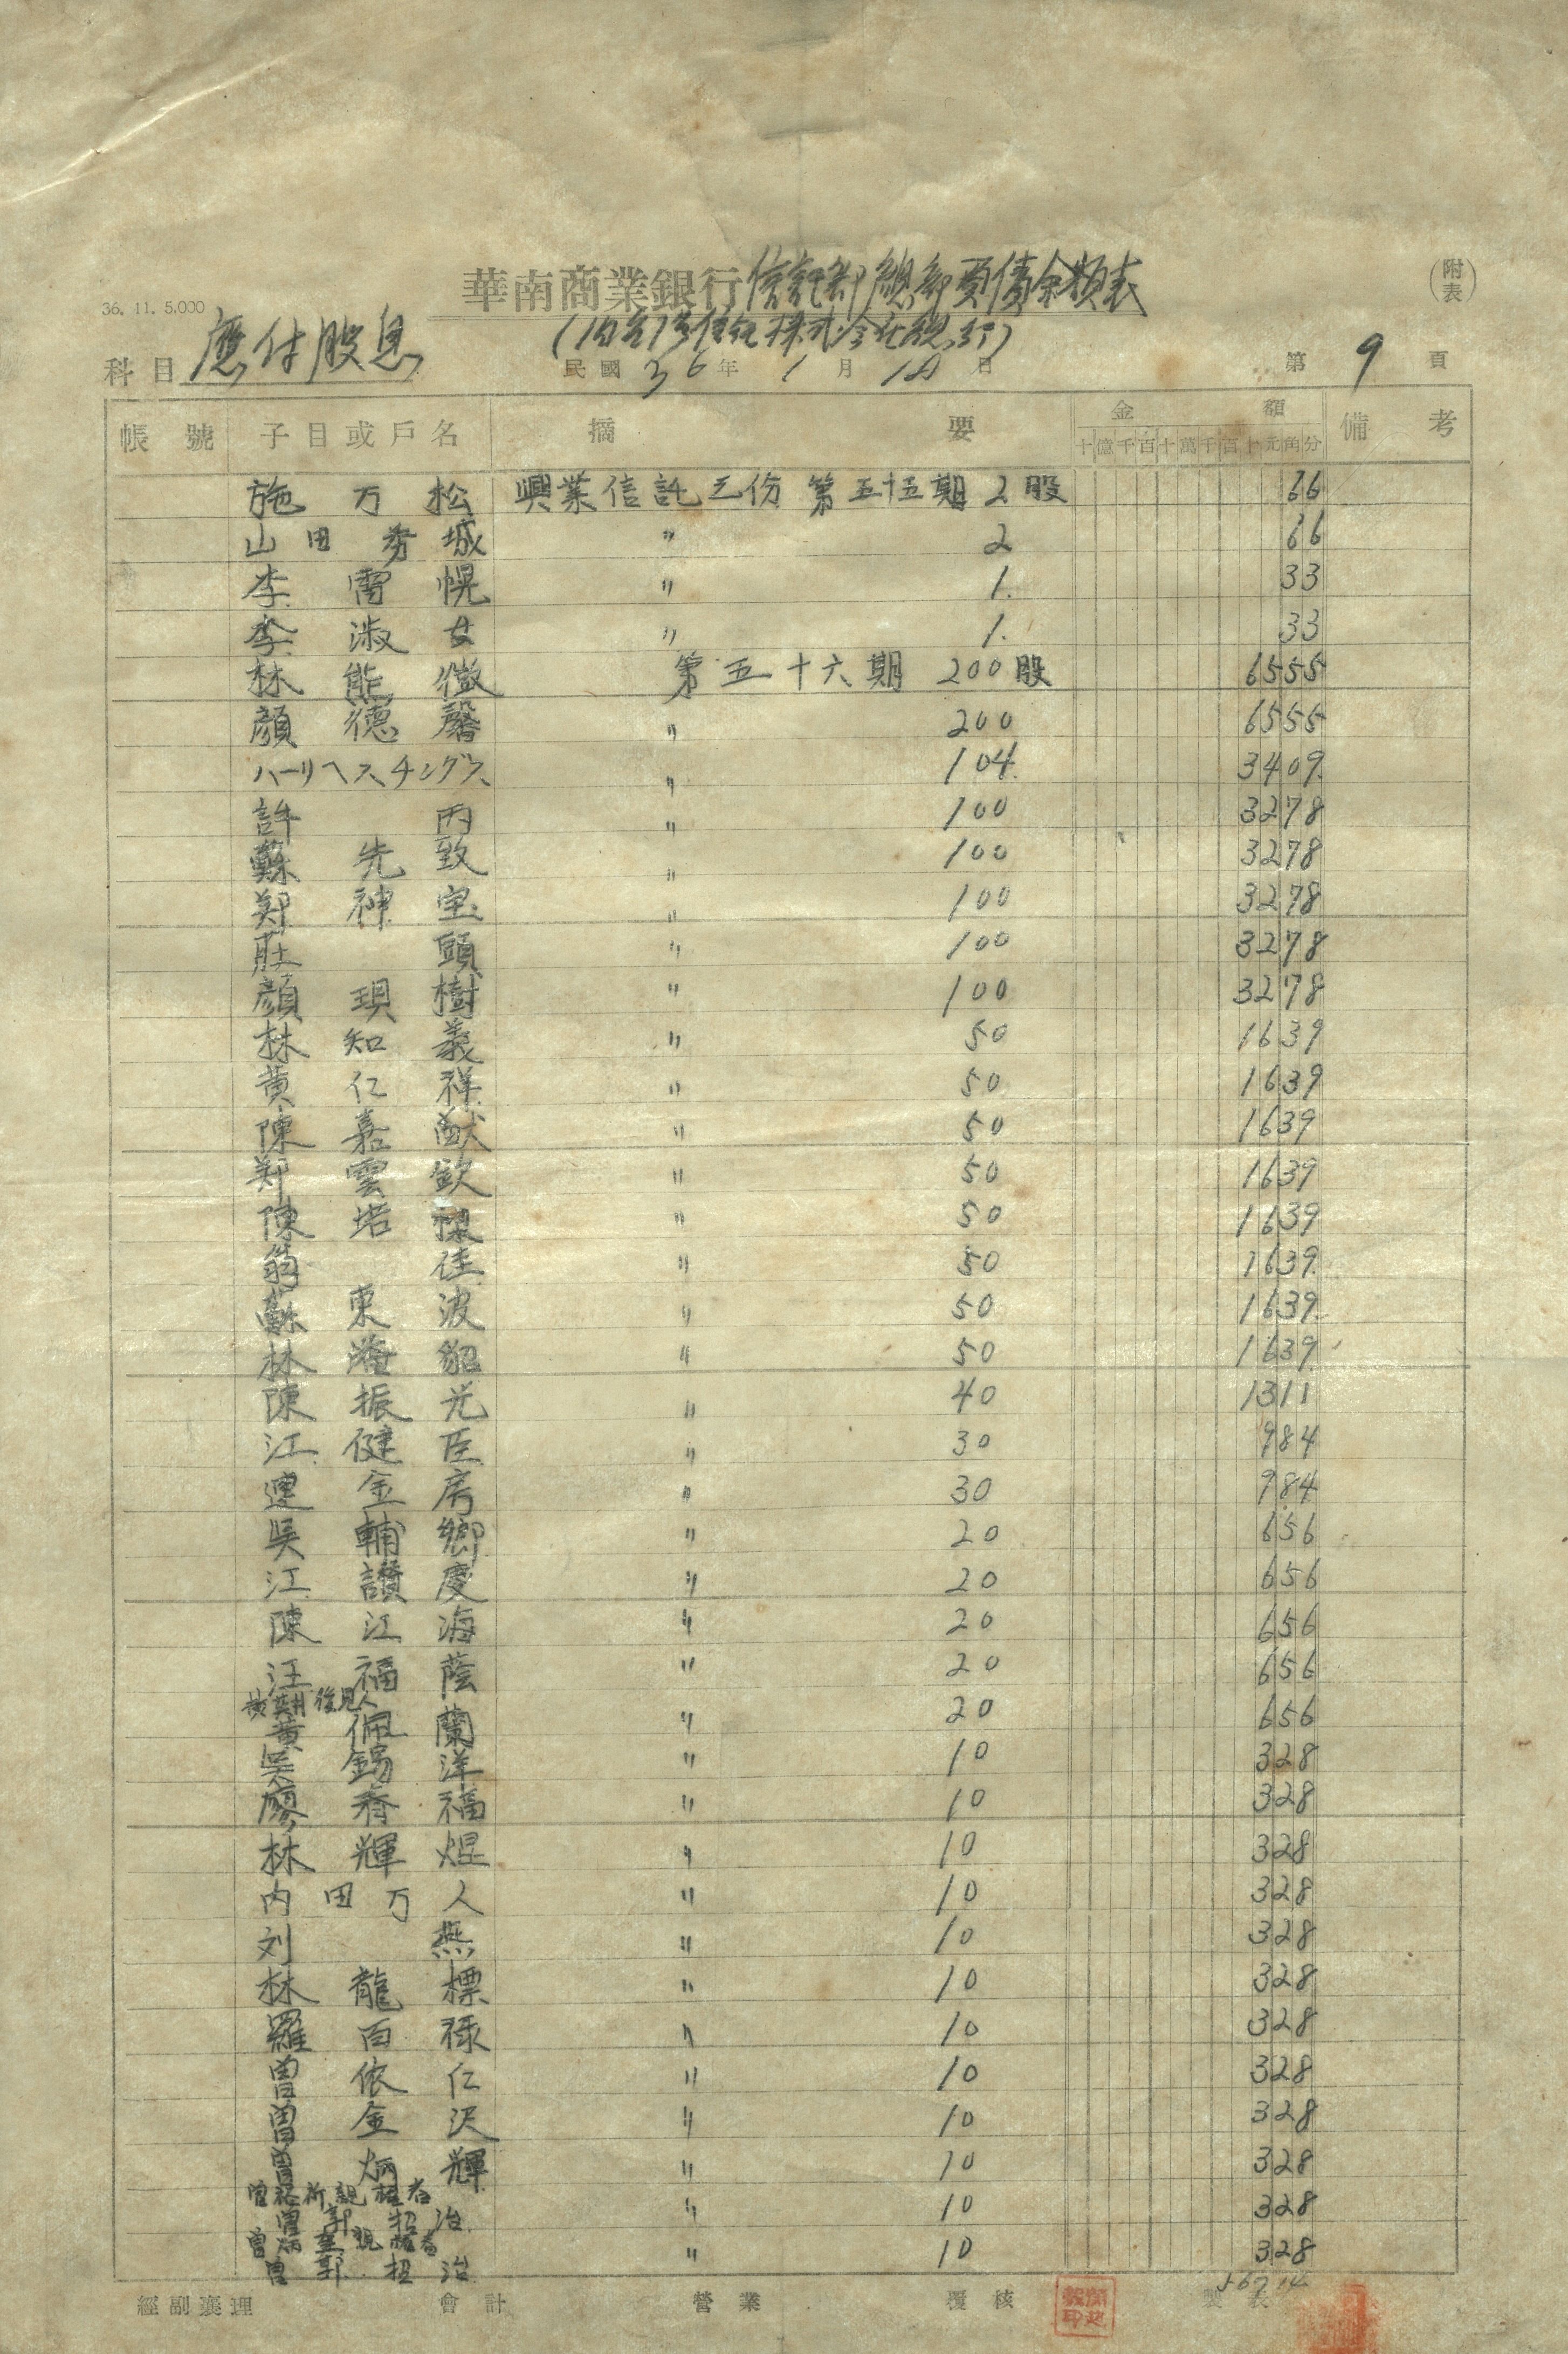 36. 11. 5.000
華南商業銀行信託部總部負債余額表
(附表)
(旧台湾信託株式会社総行)
科目 應付股息
民國 36 年 1 月 18 日
第 9 頁
帳號 子目或戶名 摘要 金額 備考
十億千百十萬千百十元角分
施万松 興業信託之份 第五十五期 2股 66
山田秀城 〃 2 66
李雷幌 〃 1. 33
李淑女 〃 1. 33
林熊徵 第五十六期 200股 6555
顏德馨 〃 200 6555
ハーリヘスチングス 〃 104. 3409.
許丙 〃 100 3278
蘇先致 〃 100 3278
郑神宝 〃 100 3278
莊頭 〃 100 3278
顏現樹 〃 100 3278
林知義 〃 50 1639
黃仁祥 〃 50 1639
陳嘉猷 〃 50 1639
郑雲欽 〃 50 1639
陳塔 〃 50 1639
翁佳 〃 50 1639.
蘇東波 〃 50 1639.
林 〃 50 1639.
陳振光 〃 40 1311
江健臣 〃 30 984
連金房 〃 30 984
吳輔鄉 〃 20 656
江讚慶 〃 20 656
陳江海 〃 20 656
汪福蔭 〃 20 656
後見人
黃佩蘭 〃 20 656
吳錫洋 〃 10 328
廖春福 〃 10 328
林輝焜 〃 10 328
内田万人 〃 10 328
刘燕 〃 10 328
林龍標 〃 10 328
羅百祿 〃 10 328
曽依仁 〃 10 328
曽金沢 〃 10 328
曽炳輝 〃 10 328
親権者
曽郭招治 〃 10 328
親権者
曽郭招治 〃 10 328
56714
經副襄理 會計 營業 覆核 製表